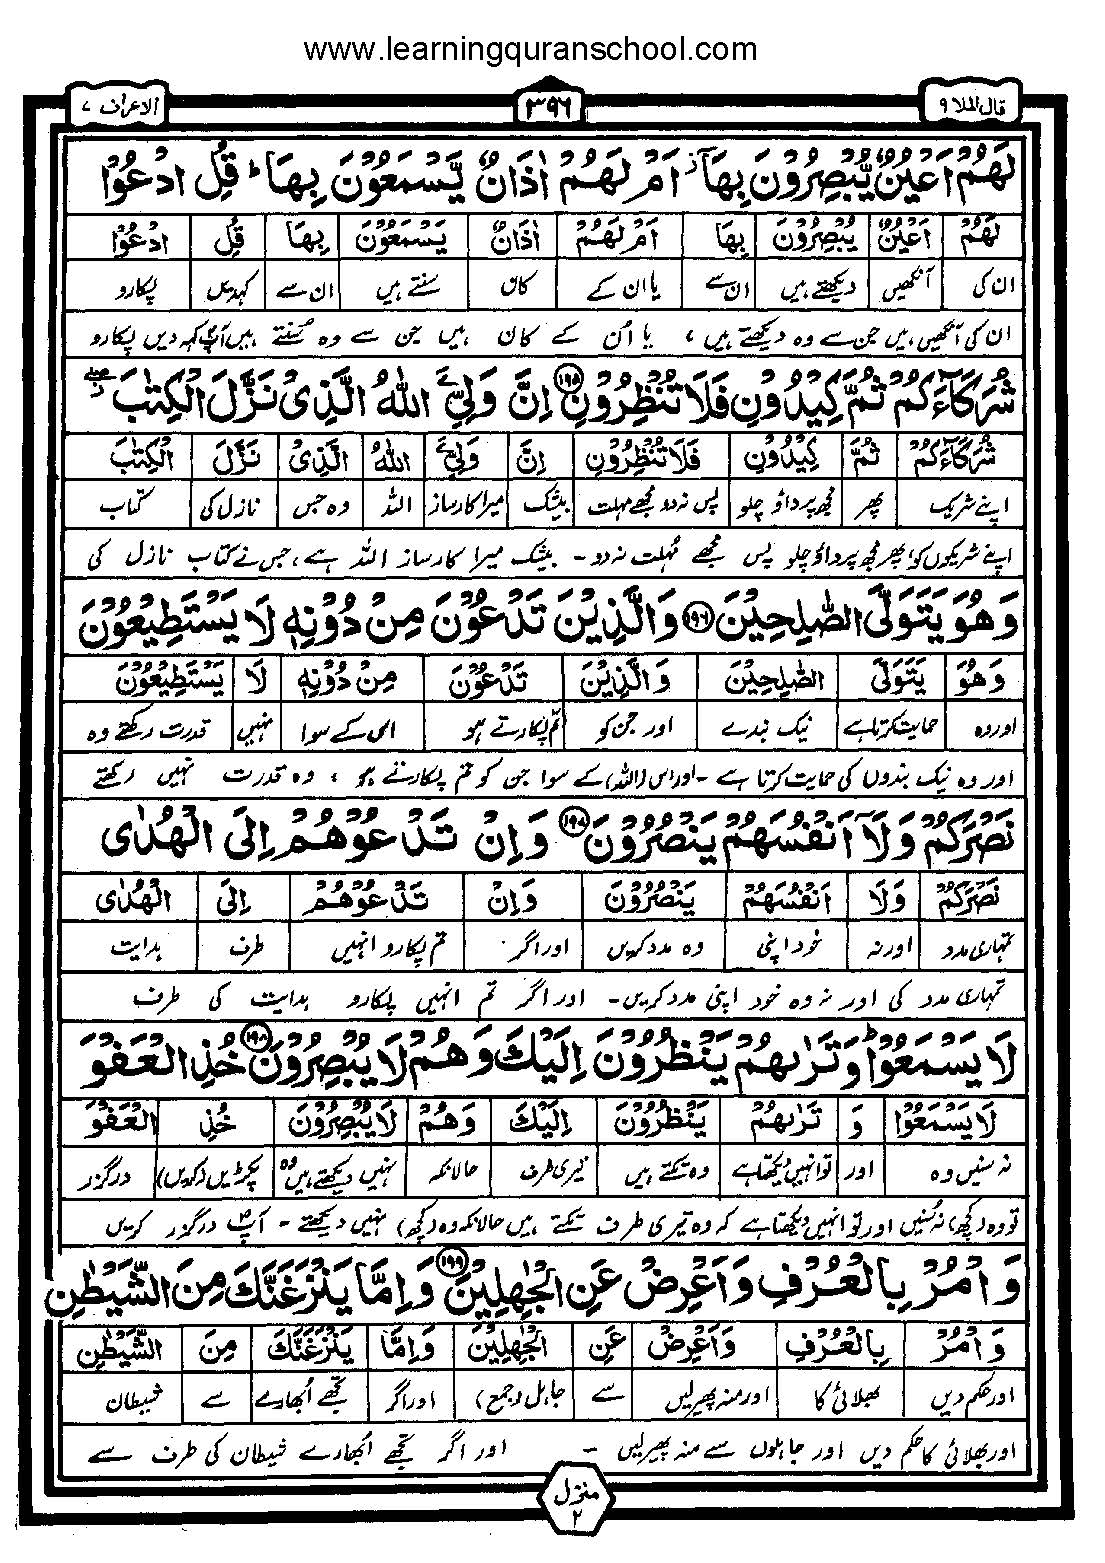 www.learningquranschool.com
قال الملا ۹
۳۹۶
الاعراف ۷
لَهُمْ اَعْيُنٌ يُّبْصِرُوْنَ بِهَاۤ ز اَمْ لَهُمْ اٰذَانٌ يَّسْمَعُوْنَ بِهَا ؕ قُلِ ادْعُوْا
لَهُمْ اَعْيُنٌ يُبْصِرُوْنَ بِهَا اَمْ لَهُمْ اٰذَانٌ يَسْمَعُوْنَ بِهَا قُلِ ادْعُوْا
ان کی آنکھیں دیکھتے ہیں ان سے یا ان کے کان سنتے ہیں ان سے کہدیں پکارو
ان کی آنکھیں ہیں جن سے وہ دیکھتے ہیں ، یا اُن کے کان ہیں جن سے وہ سُنتے ہیں آپؐ کہہ دیں پکارو
شُرَكَآءَكُمْ ثُمَّ كِيْدُوْنِ فَلَا تُنْظِرُوْنِ ۱۹۵ اِنَّ وَلِيِّ َۧ اللّٰهُ الَّذِىْ نَزَّلَ الْكِتٰبَ
شُرَكَآءَكُمْ ثُمَّ كِيْدُوْنِ فَلَا تُنْظِرُوْنِ اِنَّ وَلِيِّ َۧ اللّٰهُ الَّذِىْ نَزَّلَ الْكِتٰبَ
اپنے شریک پھر مجھ پر داؤ چلو پس نہ دو مجھے مہلت بیشک میرا کارساز اللہ وہ جس نازل کی کتاب
اپنے شریکوں کو، پھر مجھ پر داؤ چلو پس مجھے مُہلت نہ دو - بیشک میرا کارساز اللہ ہے، جس نے کتاب نازل کی
وَهُوَ يَتَوَلَّى الصّٰلِحِيْنَ ۱۹۶ وَالَّذِيْنَ تَدْعُوْنَ مِنْ دُوْنِهٖ لَا يَسْتَطِيْعُوْنَ
وَهُوَ يَتَوَلَّى الصّٰلِحِيْنَ وَالَّذِيْنَ تَدْعُوْنَ مِنْ دُوْنِهٖ لَا يَسْتَطِيْعُوْنَ
اور وہ حمایت کرتا ہے نیک بندے اور جن کو تم پکارتے ہو اس کے سوا نہیں قدرت رکھتے وہ
اور وہ نیک بندوں کی حمایت کرتا ہے - اور اس (اللہ) کے سوا جن کو تم پکارتے ہو ، وہ قدرت نہیں رکھتے
نَصْرَكُمْ وَلَاۤ اَنْفُسَهُمْ يَنْصُرُوْنَ ۱۹۷ وَاِنْ تَدْعُوْهُمْ اِلَى الْهُدٰى
نَصْرَكُمْ وَلَا اَنْفُسَهُمْ يَنْصُرُوْنَ وَاِنْ تَدْعُوْهُمْ اِلَى الْهُدٰى
تمہاری مدد اور نہ خود اپنی وہ مدد کریں اور اگر تم پکارو انہیں طرف ہدایت
تمہاری مدد کی اور نہ وہ خود اپنی مدد کریں - اور اگر تم انہیں پکارو ہدایت کی طرف
لَا يَسْمَعُوْا ؕ وَتَرٰىهُمْ يَنْظُرُوْنَ اِلَيْكَ وَهُمْ لَا يُبْصِرُوْنَ ۱۹۸ خُذِ الْعَفْوَ
لَا يَسْمَعُوْا وَ تَرٰىهُمْ يَنْظُرُوْنَ اِلَيْكَ وَهُمْ لَا يُبْصِرُوْنَ خُذِ الْعَفْوَ
نہ سنیں وہ اور تو انہیں دیکھتا ہے وہ تکتے ہیں تیری طرف حالانکہ نہیں دیکھتے ہیں وہ پکڑیں (کریں) درگزر
تو وہ (کچھ) نہ سُنیں اور تو انہیں دیکھتا ہے کہ وہ تیری طرف تکتے ہیں حالانکہ وہ (کچھ) نہیں دیکھتے - آپؐ درگزر کریں
وَاْمُرْ بِالْعُرْفِ وَاَعْرِضْ عَنِ الْجٰهِلِيْنَ ۱۹۹ وَاِمَّا يَنْزَغَنَّكَ مِنَ الشَّيْطٰنِ
وَاْمُرْ بِالْعُرْفِ وَاَعْرِضْ عَنِ الْجٰهِلِيْنَ وَاِمَّا يَنْزَغَنَّكَ مِنَ الشَّيْطٰنِ
اور حکم دیں بھلائی کا اور منہ پھیرلیں سے جاہل (جمع) اور اگر تجھے اُبھارے سے شیطان
اور بھلائی کا حکم دیں اور جاہلوں سے منہ پھیرلیں - اور اگر تجھے اُبھارے شیطان کی طرف سے
منزل ۲